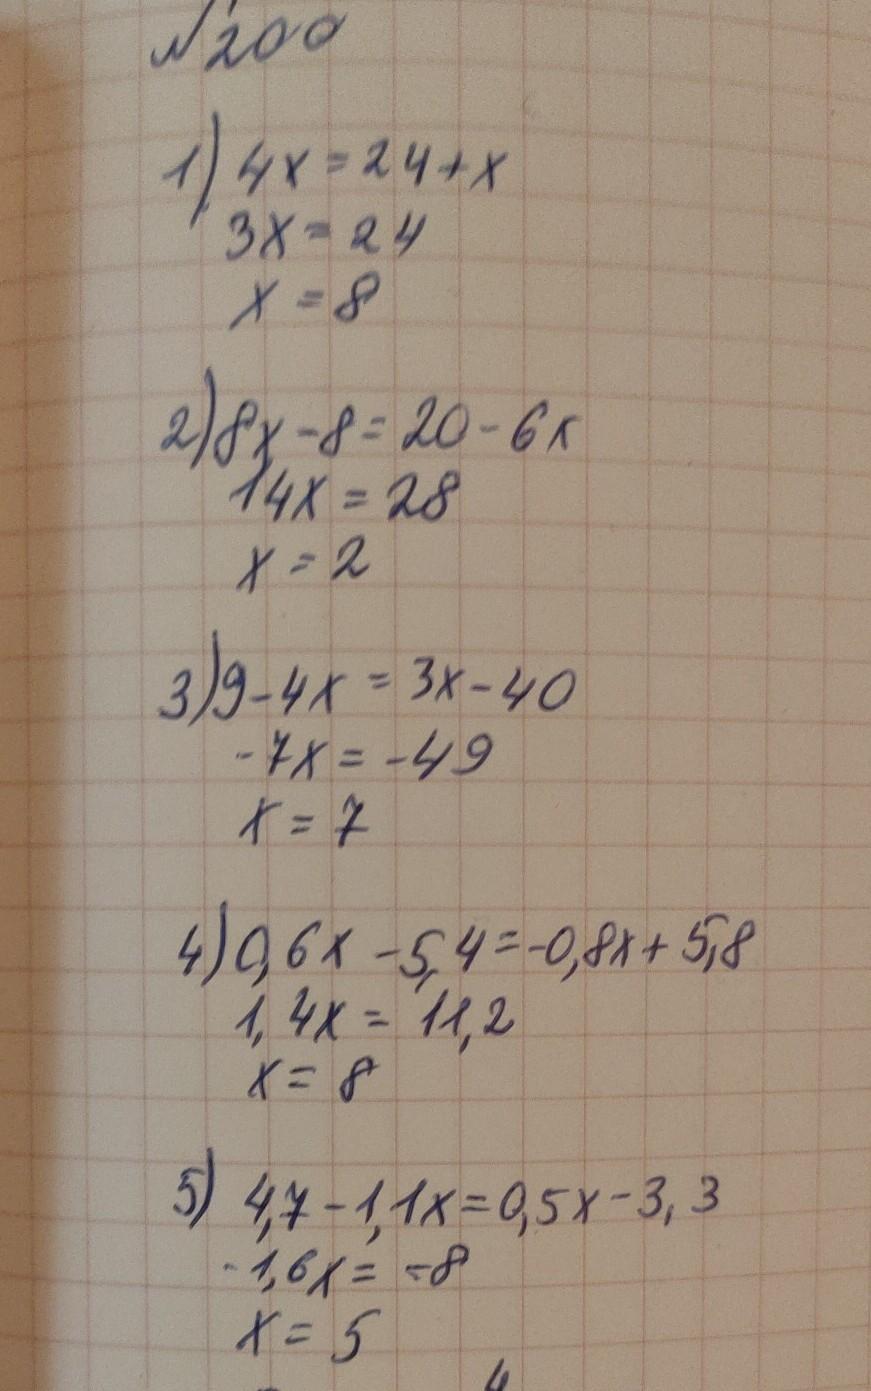 №200
1) 4x = 24 + x
3x = 24
x = 8
2) 8x - 8 = 20 - 6x
14x = 28
x = 2
3) 9 - 4x = 3x - 40
-7x = -49
x = 7
4) 0,6x - 5,4 = -0,8x + 5,8
1,4x = 11,2
x = 8
5) 4,7 - 1,1x = 0,5x - 3,3
-1,6x = -8
x = 5